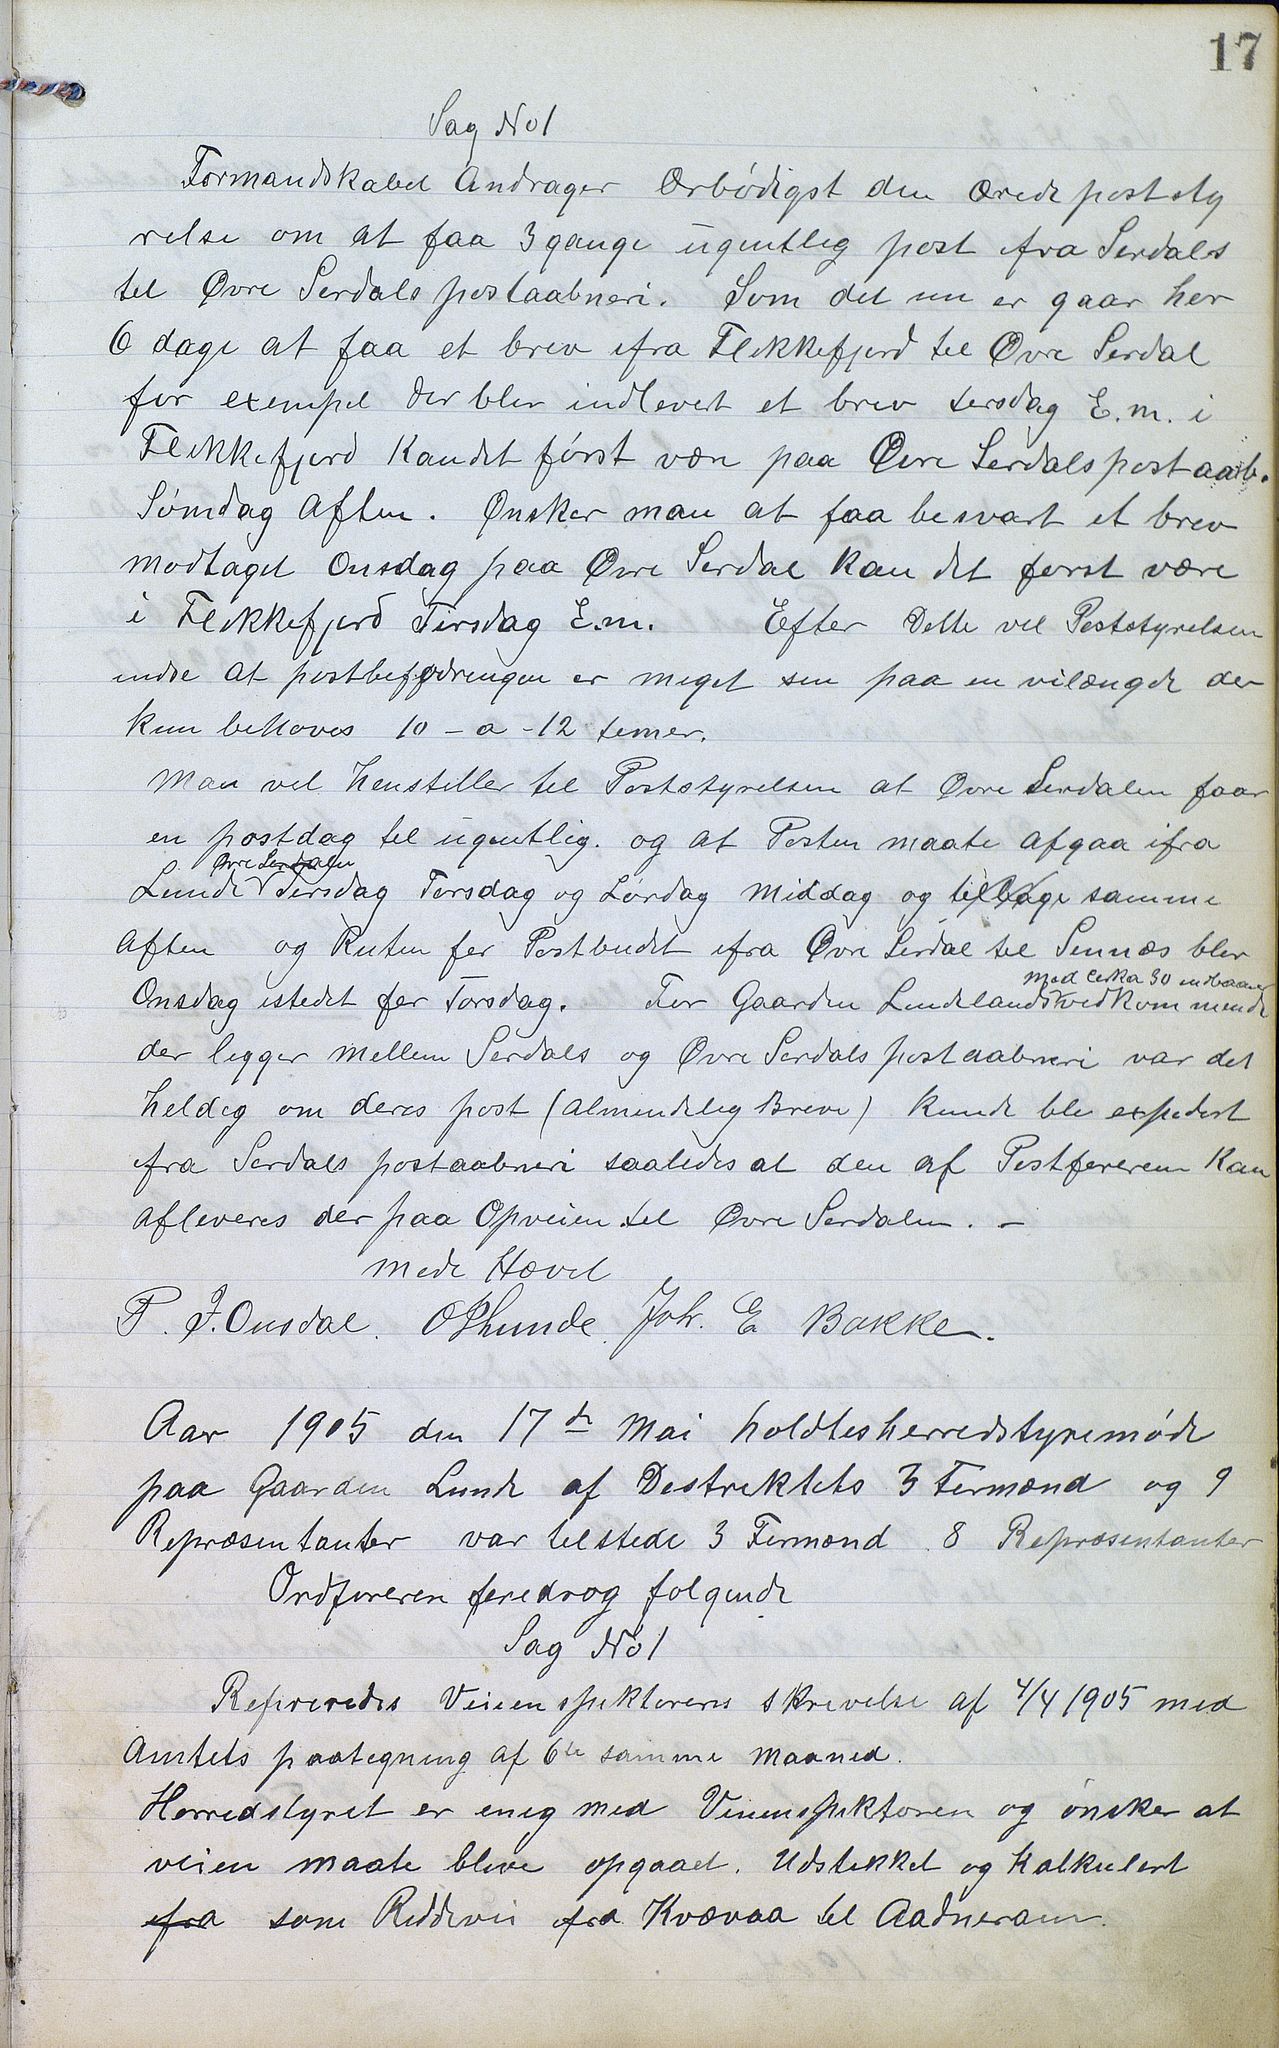 17
Sag No 1
Formandskabet Andrager Ærbödigst den ærede poststy
relse om at faa 3 gange ugentlig post ifra Serdals
tel Øvre Serdals postaabneri. Som det nu er gaar her
6 dage at faa et brev ifra Flekkefjerd tel Øvre Serdal
for exempel der blev indlevert et brev tersdag E.m. i
Flekkefjerd Kan det först være paa Øvre Serdals postaab.
Sömdag Aften. Ønsker man at faa besvart et brev
modtaget Onsdag paa Øvre Serdal kan det ferst være
i Flekkefjerd Tirsdag E.m. Efter Dette vel Poststyrelsen
indse at postbefodrengen er meget sen paa en veilængde der
kun behoves 10 - a - 12 temer.
Man vel henstiller tel Poststyrelsen at Øvre Serdalen faar
en postdag tel ugentlig. og at Posten maate afgaa ifra
Øvre Serdalen
Lunde Tersdag Torsdag og Lördag Middag og telbage samme
Aften og Ruten fer Postbudet ifra Øvre Serdal tel Sennæs blev
Onsdag istedet fer Torsdag. For Gaarden Lindelands vedkommende
med cerka 30 indbaaner
der legger mellem Serdals og Øvre Serdals postaabneri var det
heldeg om deres post (almendeleg Breve) kunde ble expedert
ifra Serdals postaabneri saaledes at den af Postfereren Kan
afleveres der paa Opveien tel Øvre Serdalen. -
mede Hævet
P. J. Ousdal. O P Lunde. Joh. E Bakke.
Aar 1905 den 17de Mai holdtes herredstyremöde
paa Gaarden Lunde af Destrektets 3 Formænd og 9
Repræsentanter var telstede 3 Formænd. 8 Repræsentanter
Ordföreren feredrog folgende
Sag No 1
Refereredes Veienspektorens skrevelse af 4/4 1905 med
Amtets paategning af 6te samme maaned.
Herredstyret er eneg med Veienspektoren og önsker at
veien maate bleve opgaaet. Udstekket og Kalkulert
ifra som Riddevei ifra Kvævaa tel Aadneram.